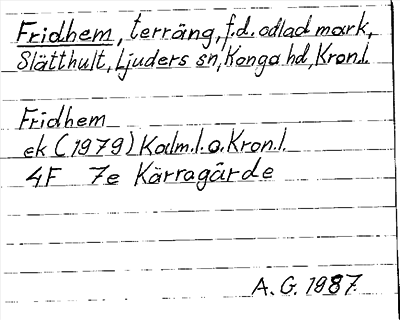 Fridhem, terräng, f.d. odlad mark,
Slätthult, Ljuders sn, Konga hd, Kron.l.
Fridhem
ek (1979) Kalm.l. o. Kron.l.
4F 7e Kärragärde
A.G. 1987